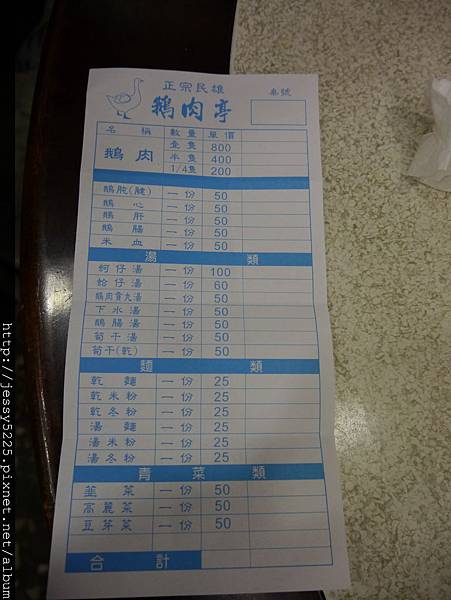 正宗民雄
桌號
鵝肉亭
名稱 數量 單價
鵝肉 全隻 800
半隻 400
1/4隻 200
鵝胗(腱) 一份 50
鵝心 一份 50
鵝肝 一份 50
鵝腸 一份 50
米血 一份 50
湯類
蚵仔湯 一份 100
蛤仔湯 一份 60
鵝肉貢丸湯 一份 50
下水湯 一份 50
鵝腸湯 一份 50
筍干湯 一份 50
筍干(乾) 一份 50
麵類
乾麵 一份 25
乾米粉 一份 25
乾冬粉 一份 25
湯麵 一份 25
湯米粉 一份 25
湯冬粉 一份 25
青菜類
韮菜 一份 50
高麗菜 一份 50
豆芽菜 一份 50
合計
http://jessy5225.pixnet.net/album